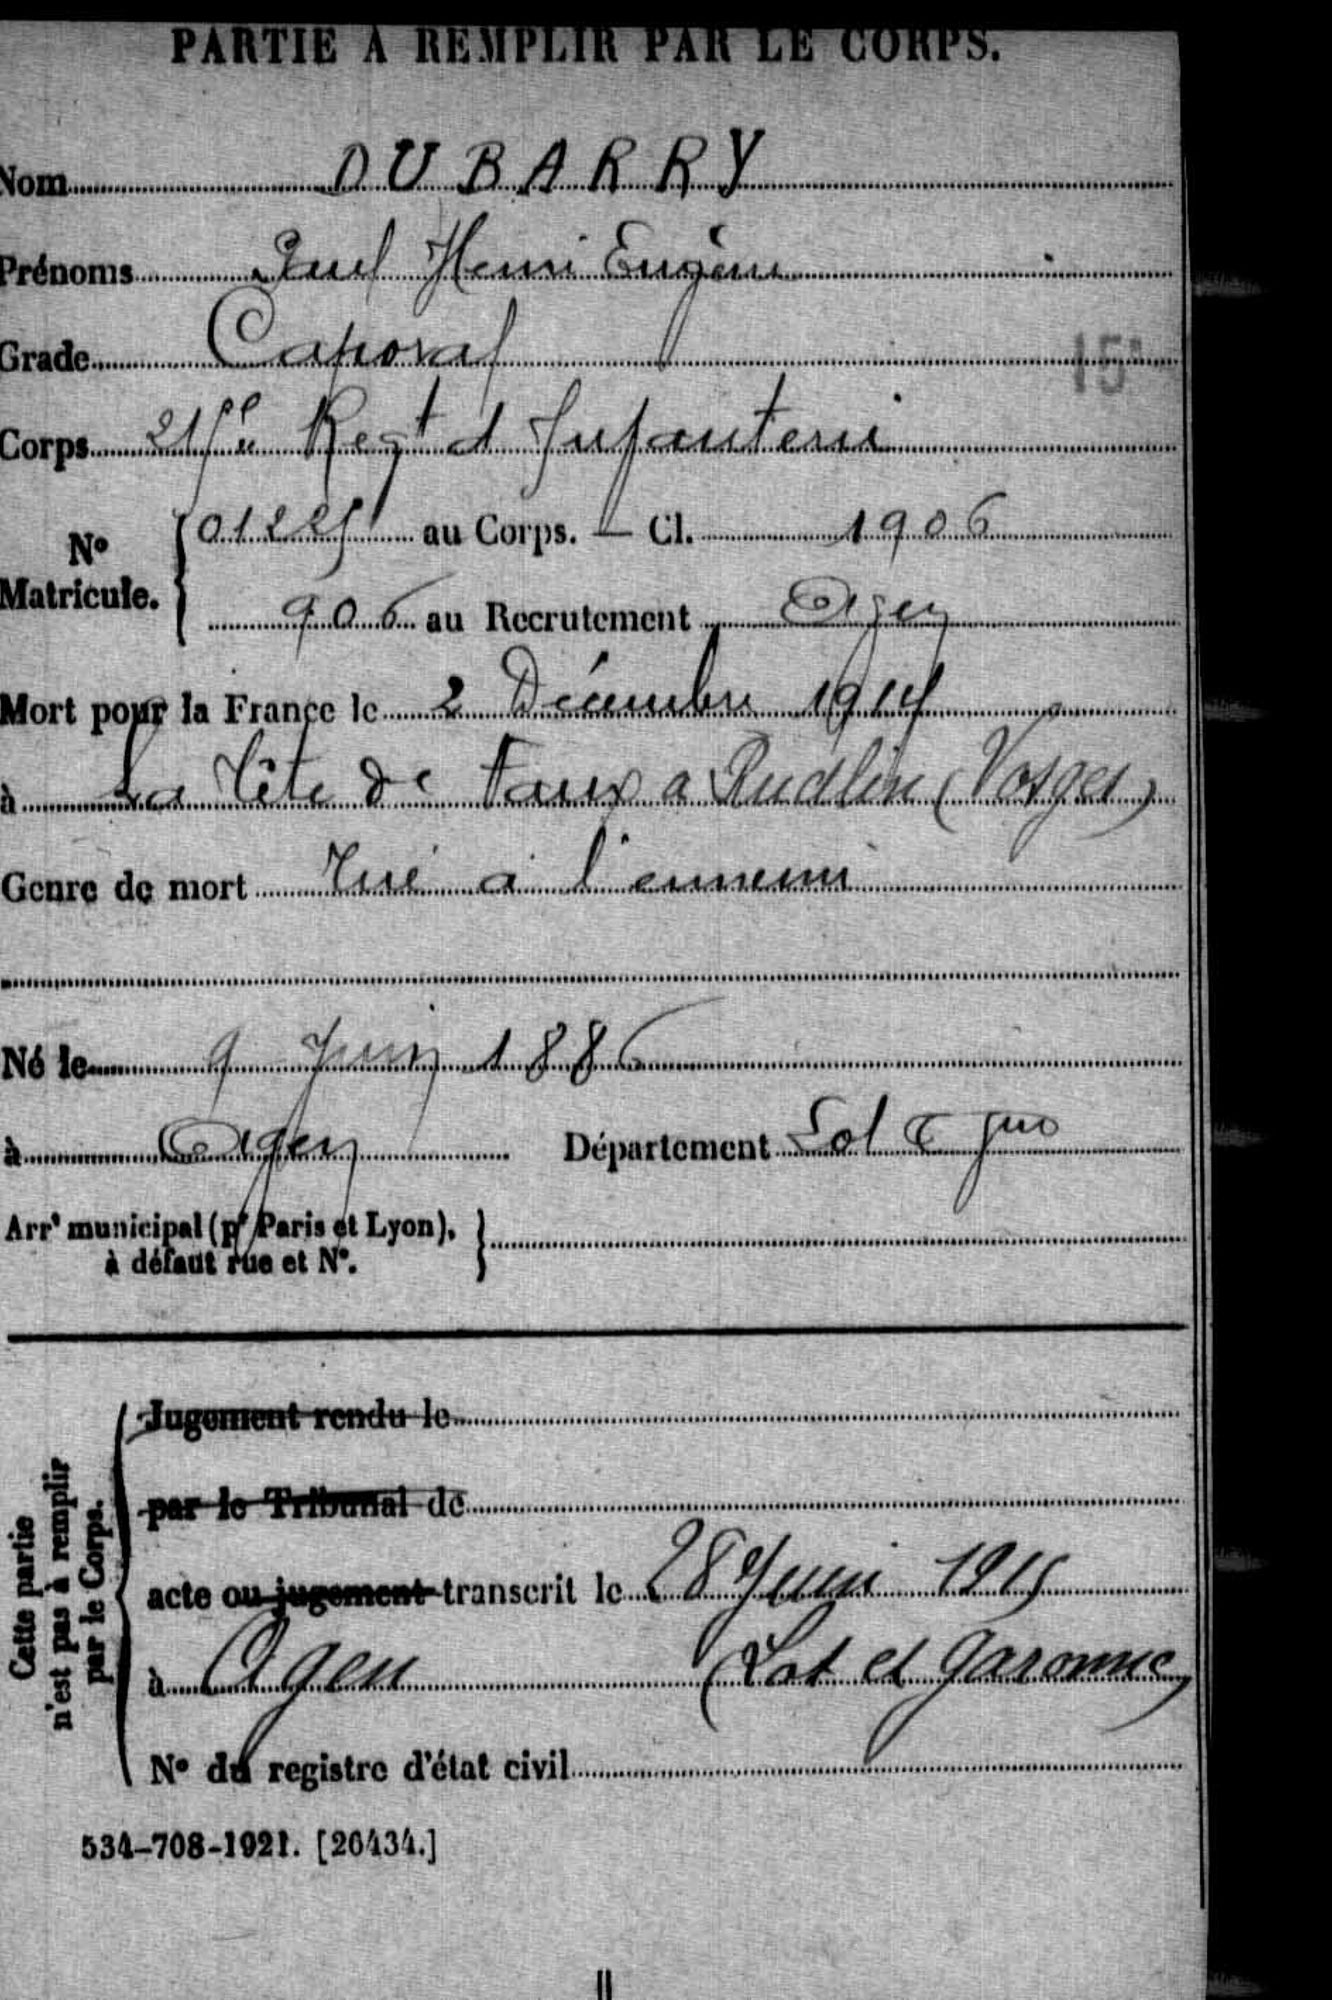 PARTIE À REMPLIR PAR LE CORPS.
Nom DUBARRY
Prénoms Paul Henri Eugène
Grade Caporal
15e
Corps 215e Regt d Infanterie
N° Matricule. { 01225 au Corps. — Cl. 1906
906 au Recrutement Agen
Mort pour la France le 2 Décembre 1914
à La Tête de Faux a Rudlin (Vosges)
Genre de mort Tué à l'ennemi
Né le 9 Juin 1886
à Agen Département Lot & Gne
Arrt municipal (pr Paris et Lyon), à défaut rue et N°. }
Cette partie n'est pas à remplir par le Corps.
Jugement rendu le
par le Tribunal de
acte ou jugement transcrit le 28 Juin 1915
à Agen (Lot et Garonne)
N° du registre d'état civil
534-708-1921. [26434.]